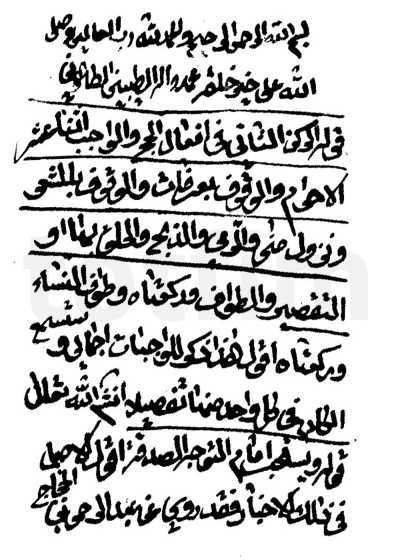 بسم الله الرحمن الرحيم والحمد لله رب العالمين وصلى
الله على خير خلقه محمد وآله الطيبين الطاهرين
قوله الركن الثاني في افعال الحج والواجب اثنا عشر
الاحرام والوقوف بعرفات والوقوف بالمشعر
ونزول منى والرمي والذبح والحلق بها او
التقصير والطواف وركعتاه وطواف النساء
وركعتاه اقول هذا ذكر للواجبات اجمالي و
الكلام في كل واحد منها تفصيلا انشاء الله تعالى
قوله ويستحب امام التوجه الصدقة اقول الاصل
في ذلك الاخبار فقد روي عن عبد الرحمن بن الحجاج